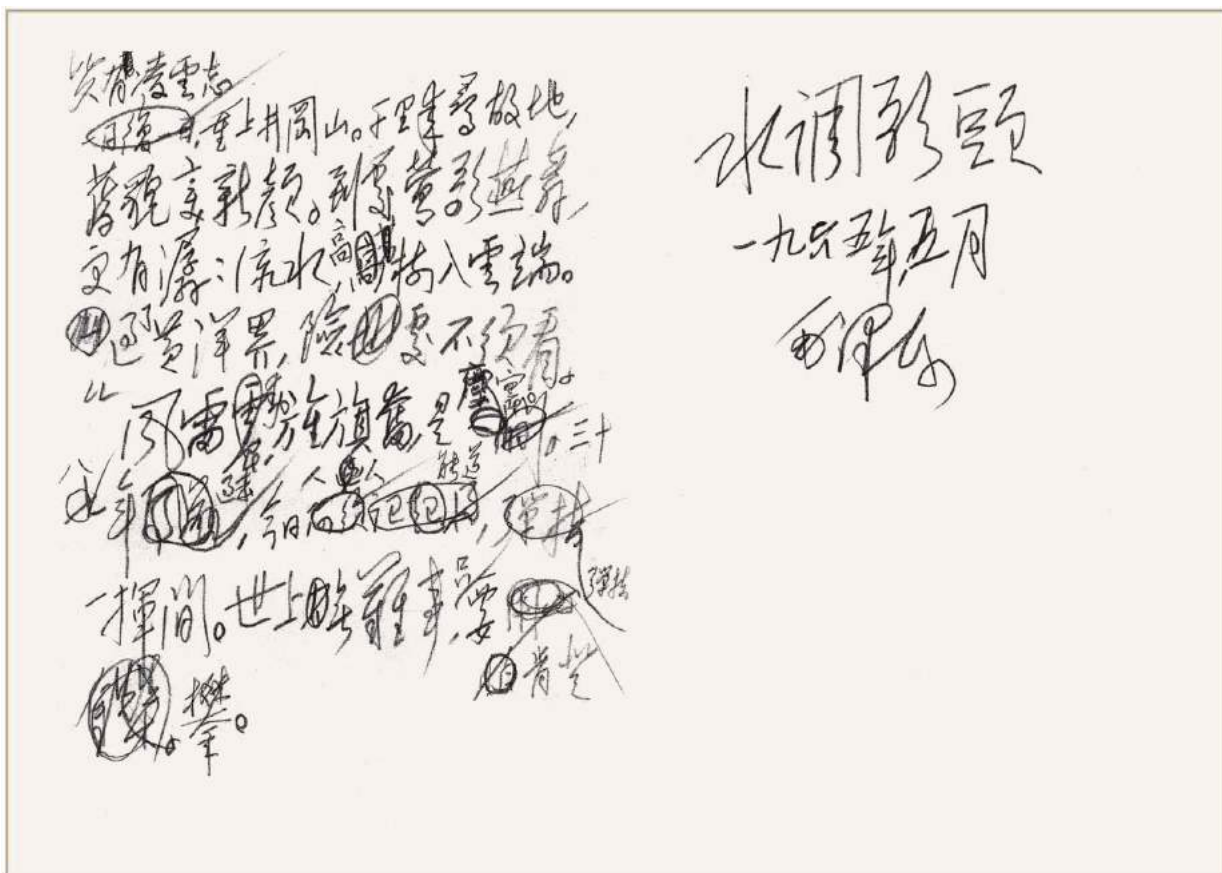 有凌雲志。
重上井岡山。千里来尋故地,
舊貌变新顏。到處鶯歌燕舞,
更有潺:流水,高樹入雲端。
过黄洋界,險處不須看。
风雷動,旌旗奮,是塵寰。三十
年,今日人人能道,彈指
一揮間。世上無難事,只要
肯登
攀。
水调歌頭
一九六五年五月
毛泽东